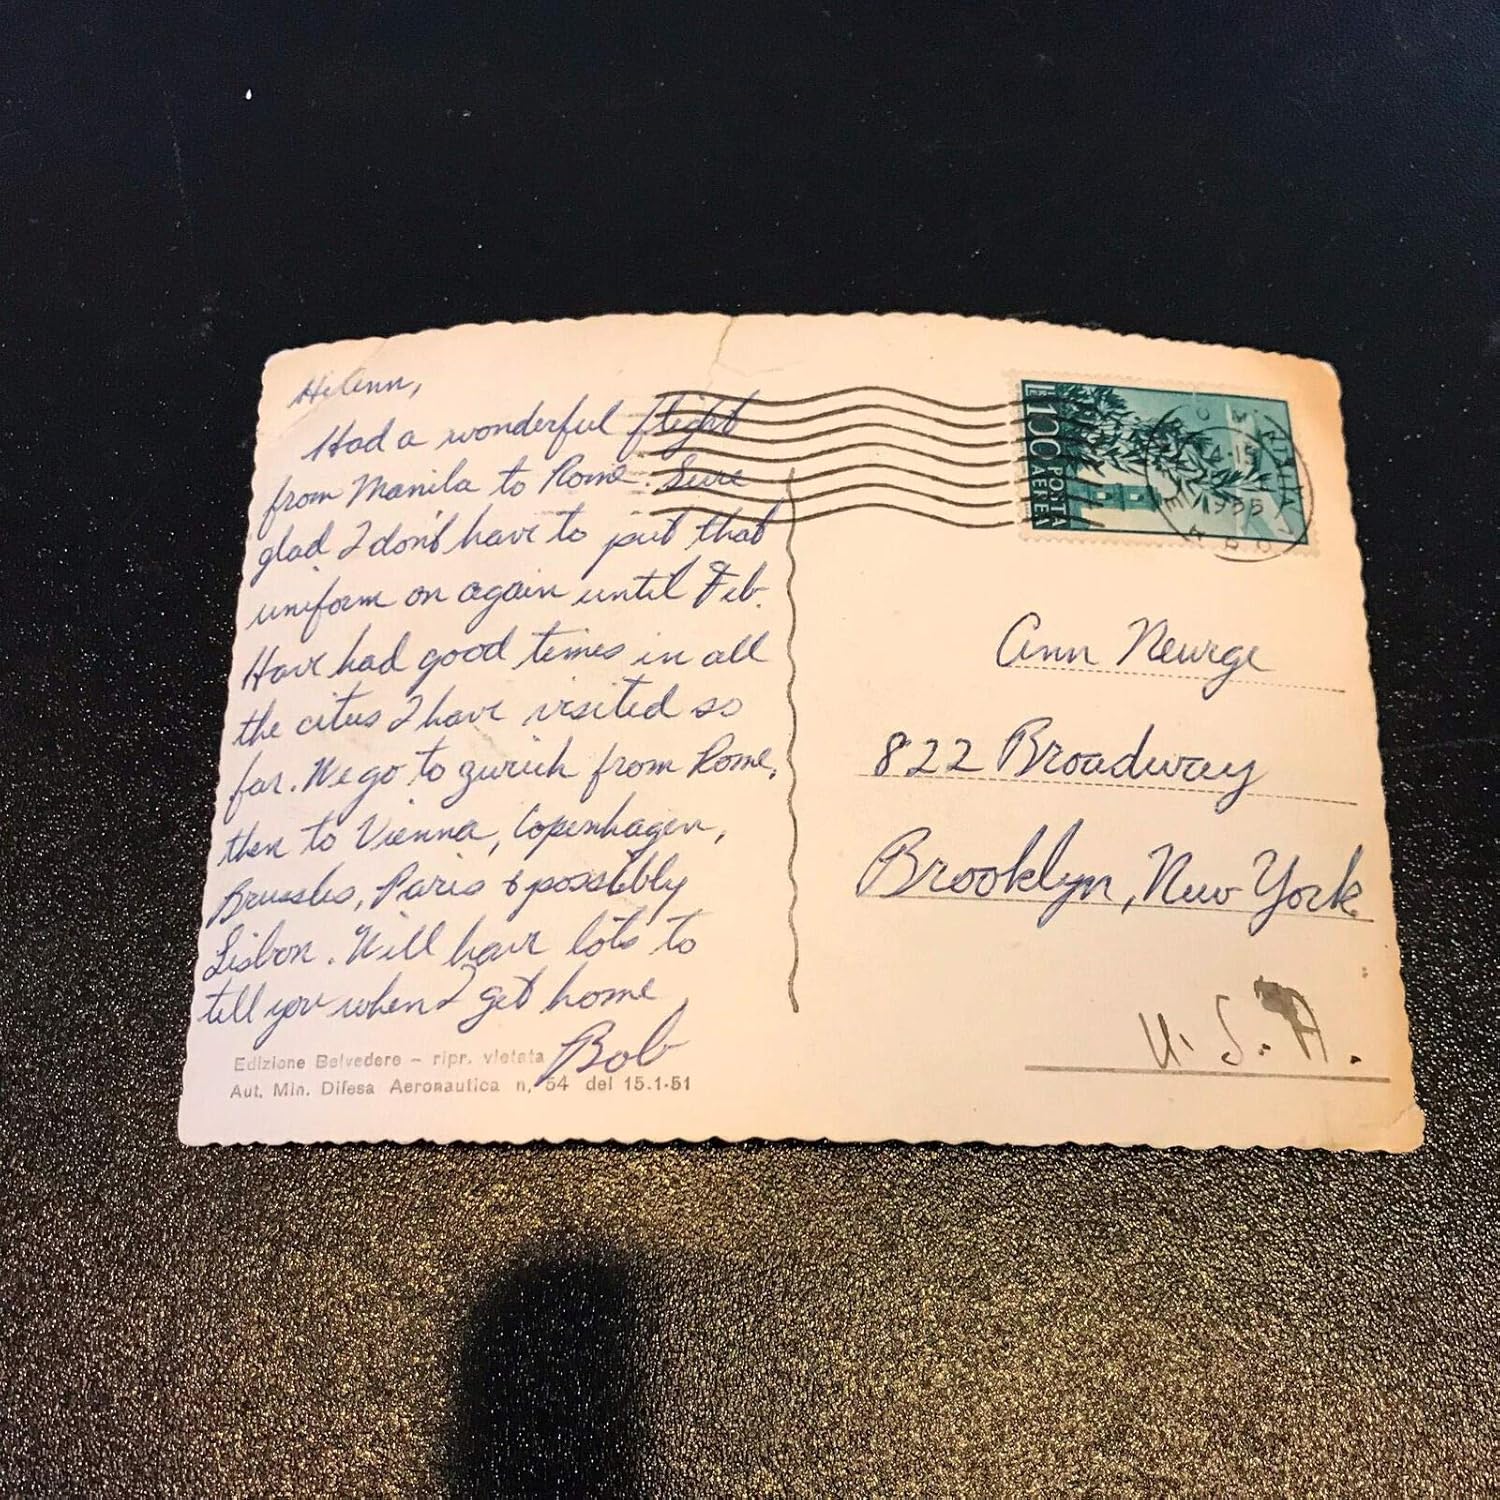 Hi Ann,
Had a wonderful flight
from Manila to Rome. Sure
glad I don't have to put that
uniform on again until Feb.
Have had good times in all
the cities I have visited so
far. We go to Zurich from Rome,
then to Vienna, Copenhagen,
Brussles, Paris & possibly
Lisbon. Will have lots to
tell you when I get home,
Bob
Edizione Belvedere - ripr. vietata
Aut. Min. Difesa Aeronautica n. 54 del 15.1-51
L.100 POSTA
AEREA
ITALIA
1955
Ann Neurge
822 Broadway
Brooklyn, New York
U.S.A.